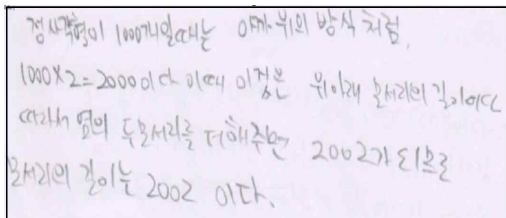 정사각형이 1000개일때는 아까 위의 방식처럼,
1000×2=2000이다 이때 이것은 위아래 모서리의 길이이다
따라서 옆의 두모서리를 더해주면 2002가 되므로
모서리의 길이는 2002 이다.